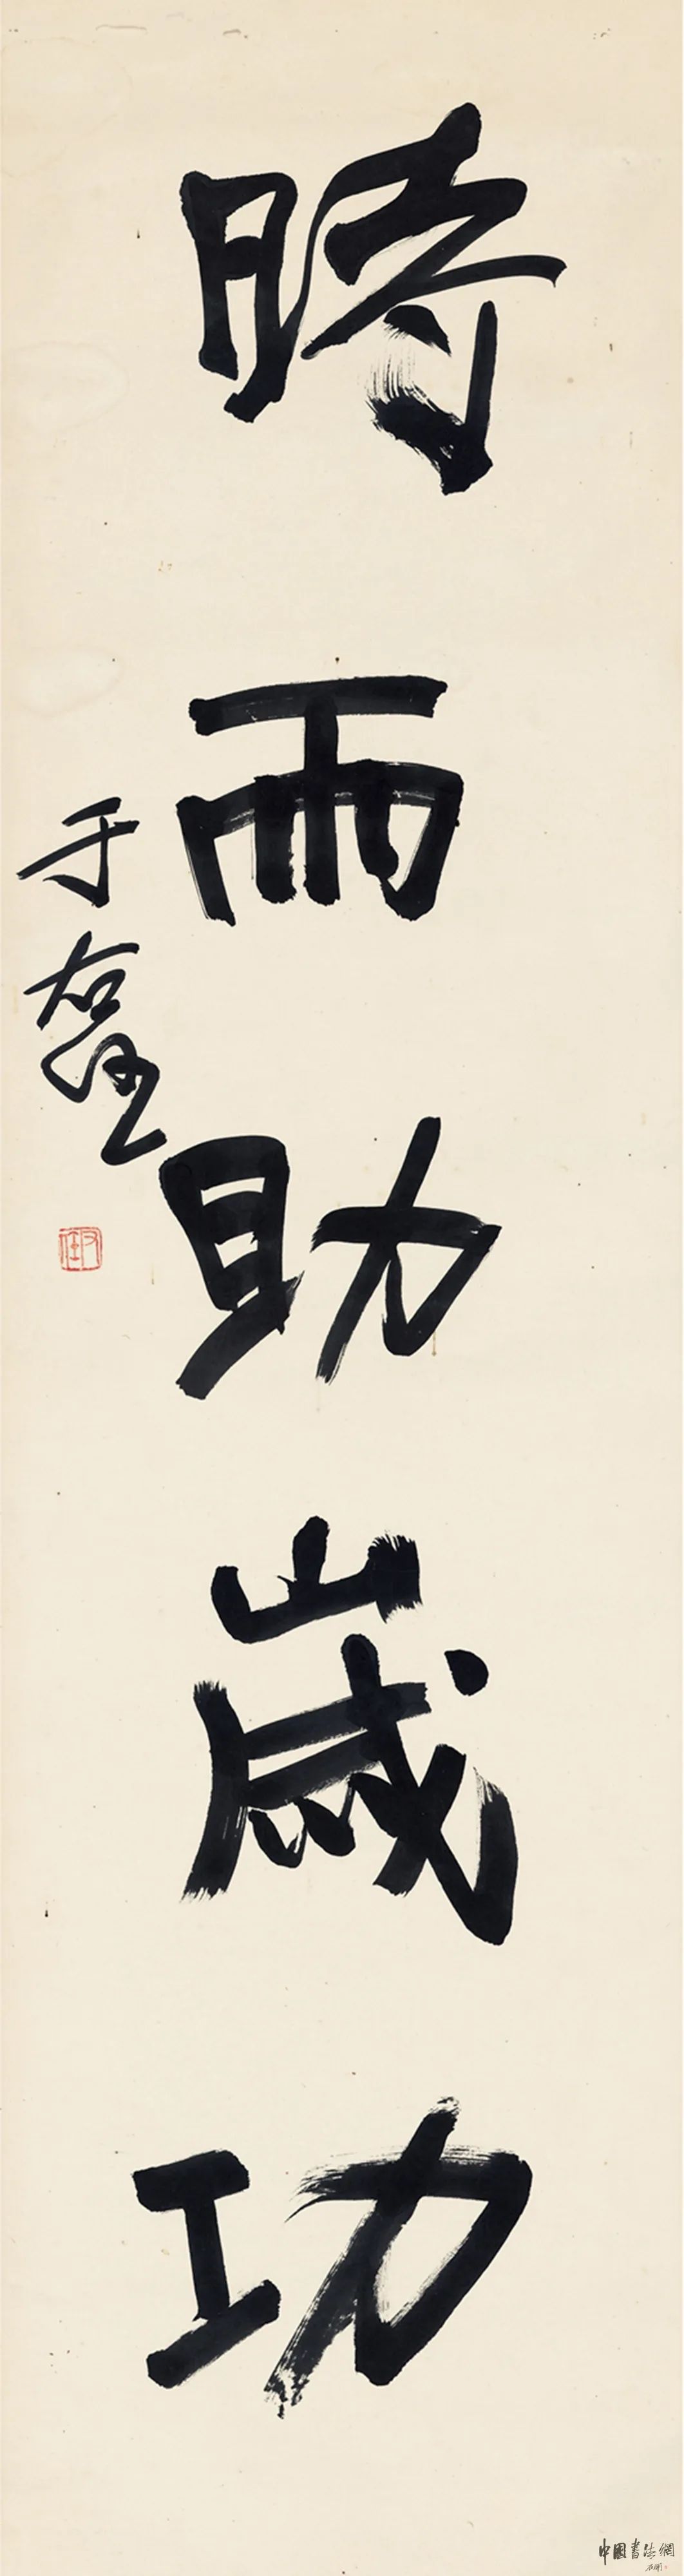 時雨助歲功
于右任
中國書法網